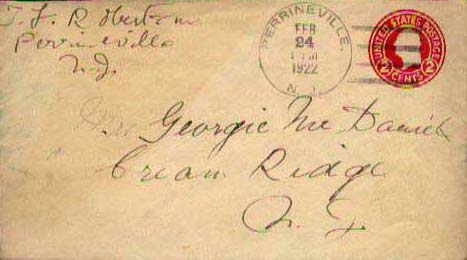 T. L. Robertson
Perrineville
N.J.
PERRINEVILLE,
FEB
24
1922
N.J.
UNITED STATES POSTAGE
2 CENTS 2
Georgie Mc Daniel
Cream Ridge
N.J.